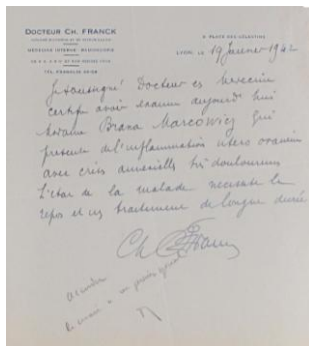 DOCTEUR CH. FRANCK
MÉDECINE INTERNE - RADIOSCOPIE
TÉL. FRANKLIN
PLACE DES CÉLESTINS
LYON, le 19 Janvier 1942
Je soussigné Docteur es Medecine
certifie avoir examiné aujourd'hui
Madame Brana Marcowicz qui
presente de l'inflammation utero ovarienne
avec crises annexielles très douloureuses
L'état de la malade necessite le
repos et un traitement de longue durée
Ch Franck